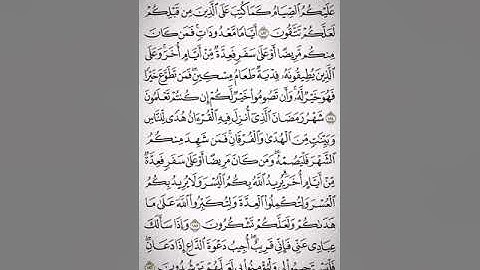 عَلَيْكُمُ ٱلصِّيَامُ كَمَا كُتِبَ عَلَى ٱلَّذِينَ مِن قَبْلِكُمْ
لَعَلَّكُمْ تَتَّقُونَ ١٨٣ أَيَّامًا مَّعْدُودَٰتٍ ۚ فَمَن كَانَ
مِنكُم مَّرِيضًا أَوْ عَلَىٰ سَفَرٍ فَعِدَّةٌ مِّنْ أَيَّامٍ أُخَرَ ۚ وَعَلَى
ٱلَّذِينَ يُطِيقُونَهُۥ فِدْيَةٌ طَعَامُ مِسْكِينٍ ۖ فَمَن تَطَوَّعَ خَيْرًا
فَهُوَ خَيْرٌ لَّهُۥ ۚ وَأَن تَصُومُوا۟ خَيْرٌ لَّكُمْ ۖ إِن كُنتُمْ تَعْلَمُونَ
١٨٤ شَهْرُ رَمَضَانَ ٱلَّذِىٓ أُنزِلَ فِيهِ ٱلْقُرْءَانُ هُدًى لِّلنَّاسِ
وَبَيِّنَٰتٍ مِّنَ ٱلْهُدَىٰ وَٱلْفُرْقَانِ ۚ فَمَن شَهِدَ مِنكُمُ
ٱلشَّهْرَ فَلْيَصُمْهُ ۖ وَمَن كَانَ مَرِيضًا أَوْ عَلَىٰ سَفَرٍ فَعِدَّةٌ
مِّنْ أَيَّامٍ أُخَرَ ۗ يُرِيدُ ٱللَّهُ بِكُمُ ٱلْيُسْرَ وَلَا يُرِيدُ بِكُمُ
ٱلْعُسْرَ وَلِتُكْمِلُوا۟ ٱلْعِدَّةَ وَلِتُكَبِّرُوا۟ ٱللَّهَ عَلَىٰ مَا
هَدَىٰكُمْ وَلَعَلَّكُمْ تَشْكُرُونَ ١٨٥ وَإِذَا سَأَلَكَ
عِبَادِى عَنِّى فَإِنِّى قَرِيبٌ ۖ أُجِيبُ دَعْوَةَ ٱلدَّاعِ إِذَا دَعَانِ ۖ
فَلْيَسْتَجِيبُوا۟ لِى وَلْيُؤْمِنُوا۟ بِى لَعَلَّهُمْ يَرْشُدُونَ ١٨٦